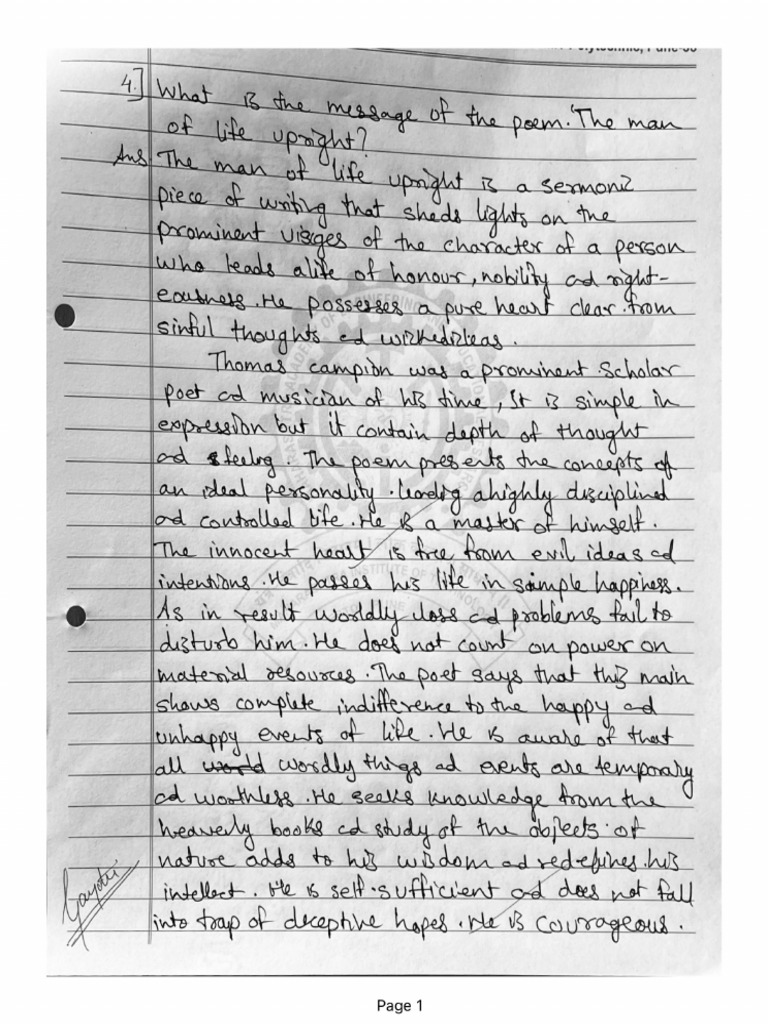 Polytechnic, Pune-
4.] What is the message of the poem. 'The man
of life upright?
Ans The man of life upright is a sermonz
piece of writing that sheds lights on the
prominent visges of the character of a person
who leads alife of honour, nobility ad right-
eousness. He possesses a pure heart clear from
sinful thoughts ad wickedideas.
Thomas campion was a prominent scholar
poet ad musician of his time, It is simple in
expression but it contain depth of thought
ad feelig. The poem presents the concepts of
an ideal personality. leadig ahighly disciplined
ad controlled life. He is a master of himself.
The innocent heart is free from evil ideas ad
intentions. He passes his life in simple happiness.
As in result worldly loss ad problems fail to
disturb him. He does not count on power on
material resources. The poet says that this main
shows complete indifference to the happy ad
unhappy events of life. He is aware of that
all world wordly things ad events are temporary
ad worthless. He seeks knowledge from the
heaverly books ad study of the objects of
nature adds to his wisdom ad redefines his
intellect. He is self-sufficient ad does not fall
into trap of deceptive hopes. He is courageous.
Gayatri
Page 1